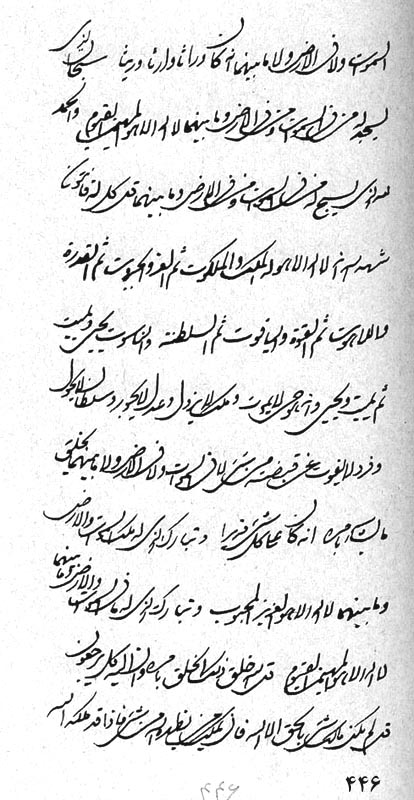 السموات ولا فی الارض ولا ما بینهما انه کان وراثا وارثا وریثا سبحان الذی
یسجد له من فی السموات ومن فی الارض وما بینهما لا اله الا هو المهیمن القیوم والحمد
لله الذی یسبح له من فی السموات ومن فی الارض وما بینهما قل کل له قانتون
شهد الله انه لا اله الا هو له الملک والملکوت ثم العز والجبروت ثم القدرة
واللاهوت ثم القوة والیاقوت ثم السلطنة والناسوت یحیی ویمیت
ثم یمیت ویحیی وانه هو حی لا یموت وملک لا یزول وعدل لا یجور وسلطان لا یحول
وفرد لا یفوت عن قبضته من شیء لا فی السموات ولا فی الارض ولا ما بینهما یخلق
ما یشاء بامره انه کان علی کل شیء قدیرا وتبارک الذی له ملک السموات والارض
وما بینهما لا اله الا هو العزیز المحبوب وتبارک الذی له ما فی السموات والارض وما بینهما
لا اله الا هو المهیمن القیوم قل الله خلق ذلک الخلق بامره وانا الیه کل یرجعون
قل لم یکن مالک شیء بالحق الا الله فان یملک من یظهره الله من شیء فاذا قد ملکه الله
۴۴۶
۴۴۶